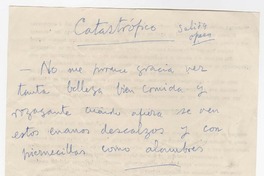 Catastrófico
Salido
— No me parece gracia ver
tanta belleza bien comida y
rozagante cuando afuera se ven
estos enanos descalzos y con
piernecillas como alambres